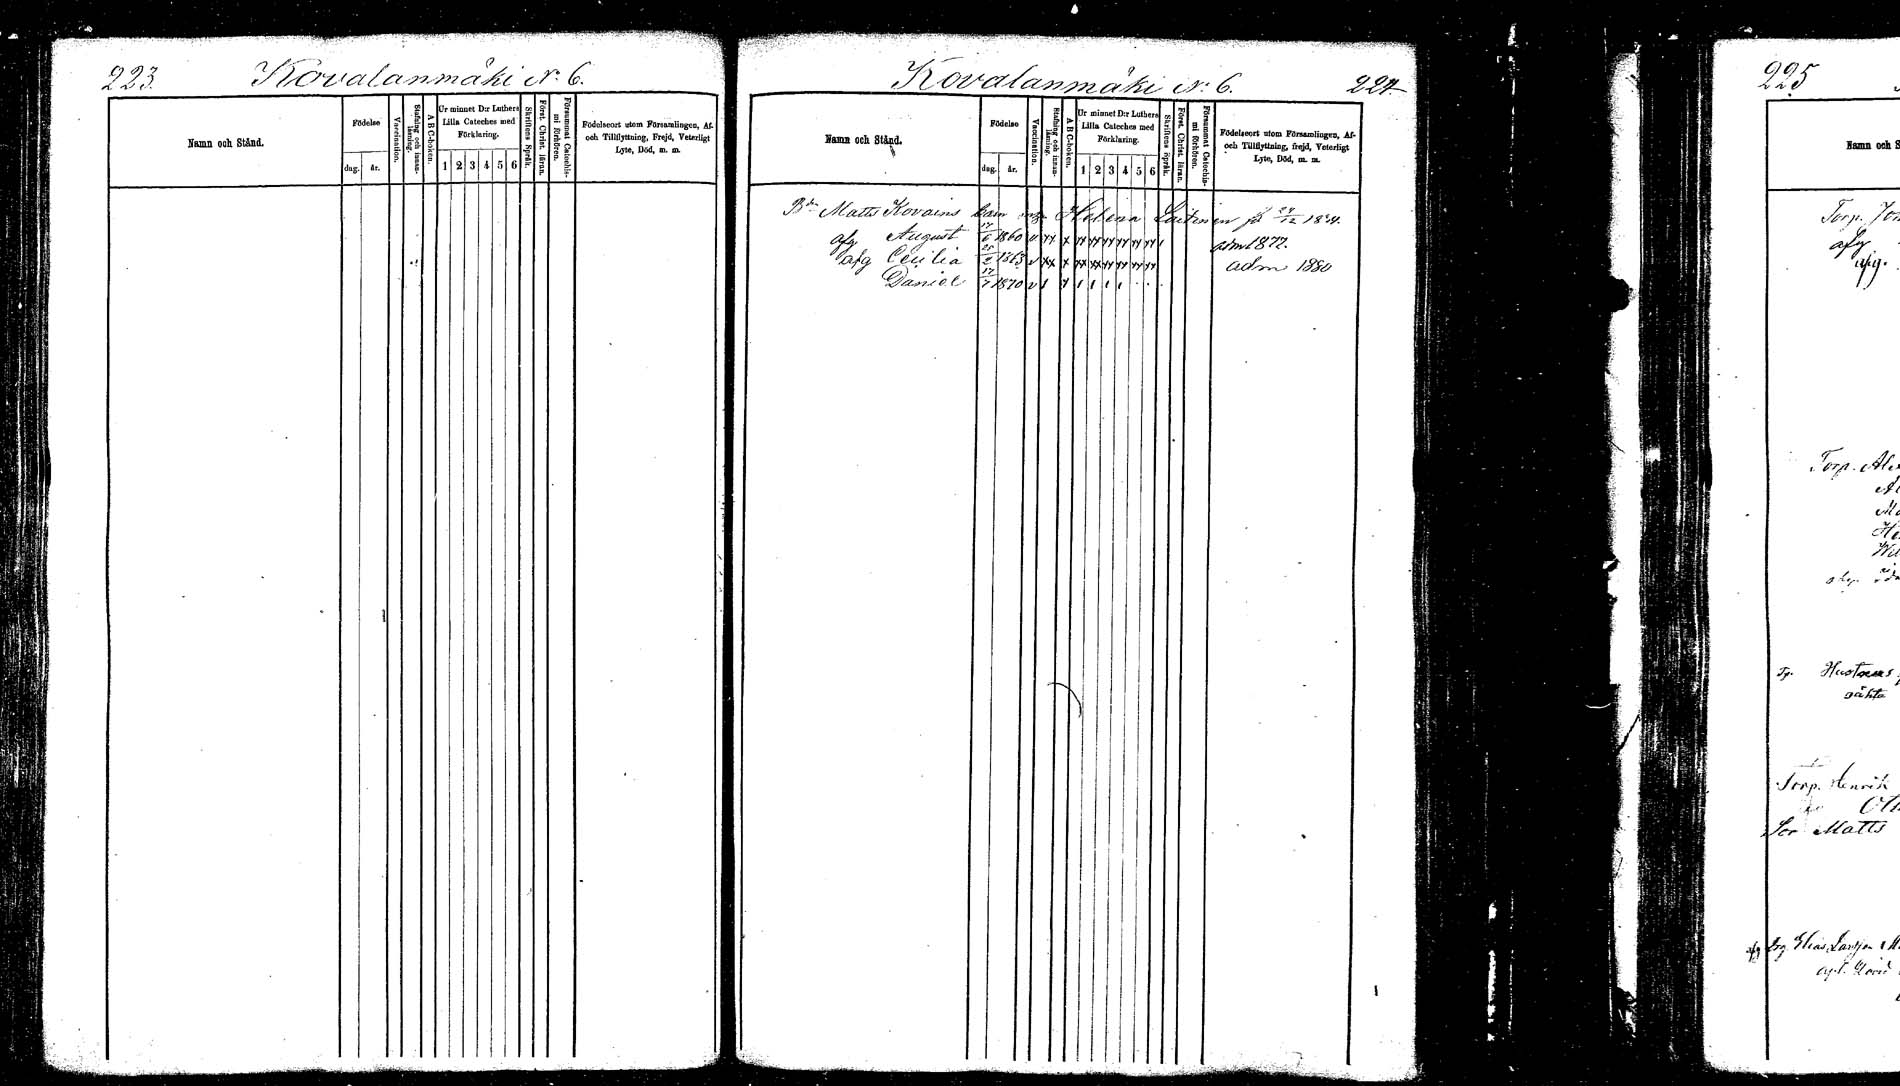 223.
Kovalanmäki No. 6.
Namn och Stånd.
Födelse
dag.
år.
Vaccination.
Stafning och innan-
läsning.
A B C-boken.
Ur minnet D:r Luthers
Lilla Cateches med
Förklaring.
1 2 3 4 5 6
Skriftens Språk.
Först. Christ. läran.
Försummat Catechis-
mi förhören.
Födelseort utom Församlingen, Af-
och Tillflyttning, Frejd, Veterligt
Lyte, Död, m. m.
Kovalanmäki No. 6.
224
Namn och Stånd.
Födelse
dag.
år.
Vaccination.
Stafning och innan-
läsning.
A B C-boken.
Ur minnet D:r Luthers
Lilla Cateches med
Förklaring.
1 2 3 4 5 6
Skriftens Språk.
Först. Christ. läran.
Försummat Catechis-
mi förhören.
Födelseort utom Församlingen, Af-
och Tillflyttning, frejd, Veterligt
Lyte, Död, m. m.
Bdn Matts Kovains barn Helena
afg August 17/6 1860 adm 1877.
afg Cecilia 25/2 1863 adm 1880
Daniel 17/7 1870
225
Namn och S
Torp.
afg
afg.
Torp.
Torp. Henrik
Matts
Elias